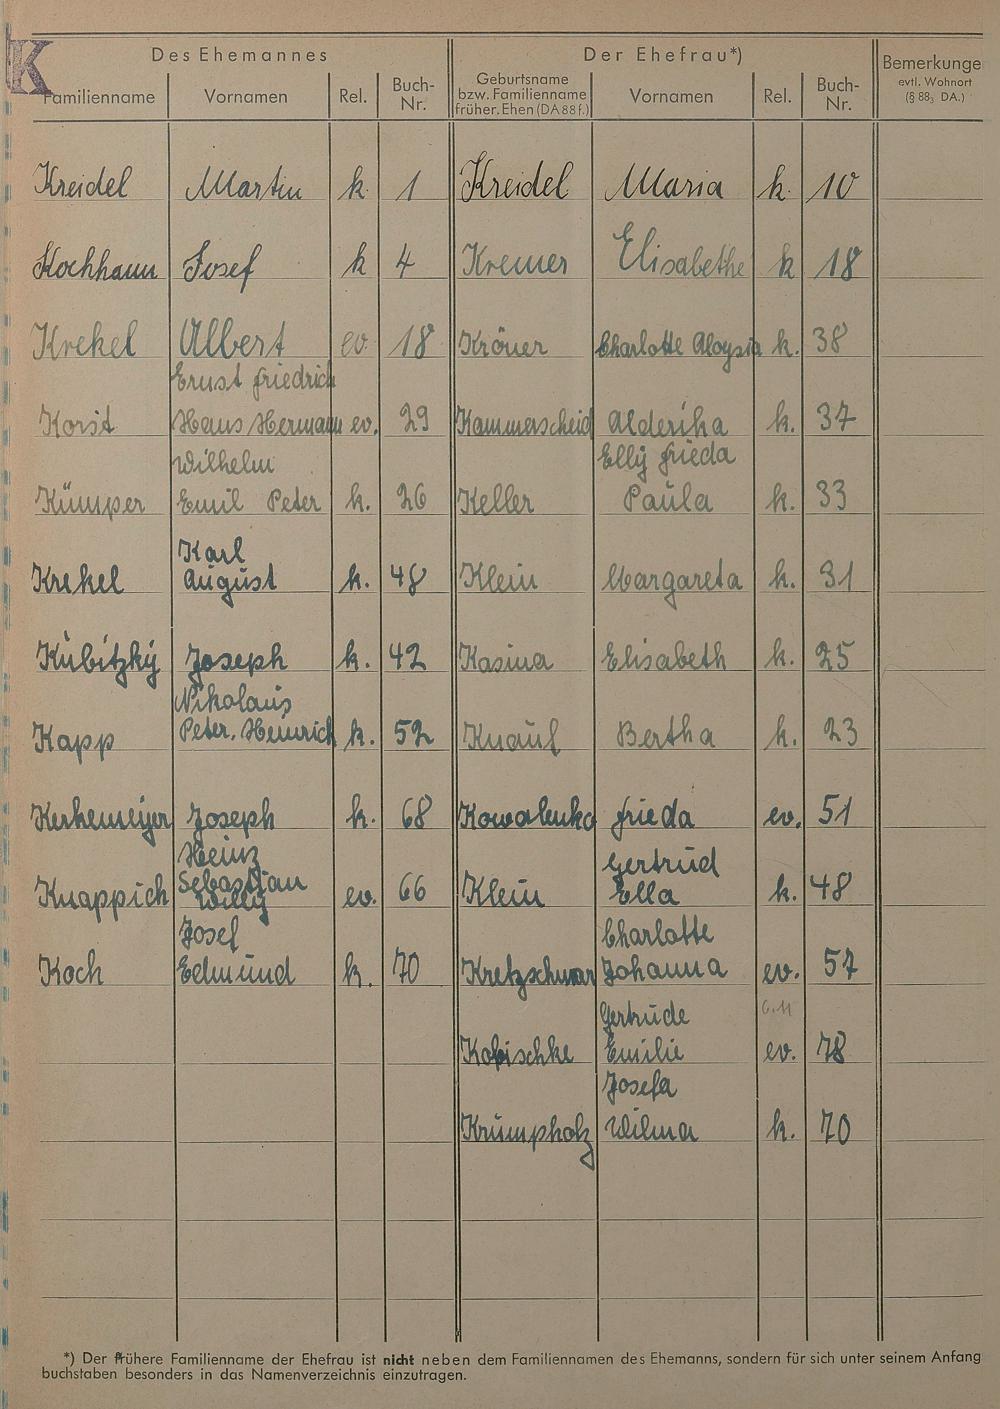 K
Des Ehemannes Der Ehefrau*) Bemerkunge
Familienname Vornamen Rel. Buch-Nr. Geburtsname bzw. Familienname früher. Ehen (DA 88 f.) Vornamen Rel. Buch-Nr. evtl. Wohnort (§ 88, DA.)
Kreidel Martin k. 1 Kreidel Maria k. 10
Kochhann Josef k 4 Kremer Elisabethe k 18
Krekel Albert ev. 18 Kröner Charlotte Aloysia k. 38
Ernst Friedrich
Korst Hans Hermann ev. 29 Kammerscheid Alderika k. 37
Wilhelm Elly Frieda
Kümper Emil Peter k. 26 Keller Paula k. 33
Karl
Krekel August k. 48 Klein Margareta k. 31
Kubitzky Joseph k. 42 Kasina Elisabeth k. 25
Nikolaus
Kapp Peter, Heinrich k. 52 Knaul Bertha k. 23
Kerkemeyer Joseph k. 68 Kowalenko Frieda ev. 51
Heinz Gertrud
Sebastian
Knappich Willy ev. 66 Klein Ella k. 48
Josef Charlotte
Koch Edmund k. 70 Kretzschmar Johanna ev. 57
Gertrude
Kobischke Emilie ev. 78
Josefa
Krumpholz Wilma k. 70
*) Der frühere Familienname der Ehefrau ist nicht neben dem Familiennamen des Ehemanns, sondern für sich unter seinem Anfang
buchstaben besonders in das Namenverzeichnis einzutragen.